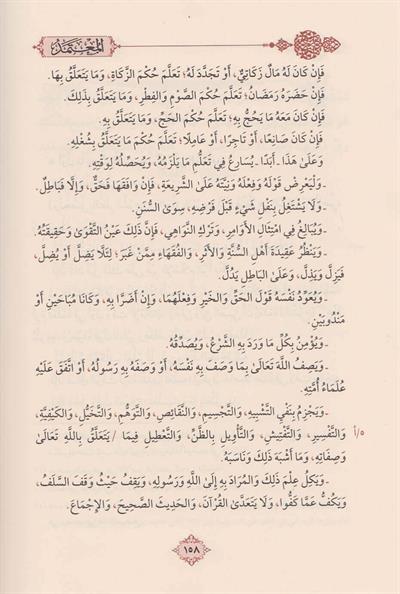 المعتمد
فَإِنْ كَانَ لَهُ مَالٌ زَكَاتِيٌّ، أَوْ تَجَدَّدَ لَهُ؛ تَعَلَّمَ حُكْمَ الزَّكَاةِ، وَمَا يَتَعَلَّقُ بِهَا.
فَإِنْ حَضَرَهُ رَمَضَانُ؛ تَعَلَّمَ حُكْمَ الصَّوْمِ وَالفِطْرِ، وَمَا يَتَعَلَّقُ بِذَلِكَ.
فَإِنْ كَانَ مَعَهُ مَا يَحُجُّ بِهِ؛ تَعَلَّمَ حُكْمَ الحَجِّ، وَمَا يَتَعَلَّقُ بِهِ.
فَإِنْ كَانَ صَانِعًا، أَوْ تَاجِرًا، أَوْ عَامِلًا؛ تَعَلَّمَ حُكْمَ مَا يَتَعَلَّقُ بِشُغْلِهِ.
وَعَلَى هَذَا - أَبَدًا - يُسَارِعُ فِي تَعَلُّمِ مَا يَلْزَمُهُ، وَيُحَصِّلُهُ لِوَقْتِهِ.
- وَلْيَعْرِضْ قَوْلَهُ وَفِعْلَهُ وَنِيَّتَهُ عَلَى الشَّرِيعَةِ، فَإِنْ وَافَقَهَا فَحَقٌّ، وَإِلَّا فَبَاطِلٌ.
- وَلَا يَشْتَغِلُ بِنَفْلِ شَيْءٍ قَبْلَ فَرْضِهِ، سِوَى السُّنَنِ.
- وَيُبَالِغُ فِي امْتِثَالِ الأَوَامِرِ، وَتَرْكِ النَّوَاهِي، فَإِنَّ ذَلِكَ عَيْنُ التَّقْوَى وَحَقِيقَتُهُ.
- وَيَنْظُرُ عَقِيدَةَ أَهْلِ السُّنَّةِ وَالأَثَرِ، وَالفُقَهَاءِ مِمَّنْ غَبَرَ؛ لِئَلَّا يَضِلَّ أَوْ يُضِلَّ،
فَيَزِلَّ وَيَذِلَّ، وَعَلَى البَاطِلِ يَدُلَّ.
- وَيُعَوِّدُ نَفْسَهُ قَوْلَ الحَقِّ وَالخَيْرِ وَفِعْلَهُمَا، وَإِنْ أَضَرَّا بِهِ، وَكَانَا مُبَاحَيْنِ أَوْ
مَنْدُوبَيْنِ.
- وَيُؤْمِنُ بِكُلِّ مَا وَرَدَ بِهِ الشَّرْعُ، وَيُصَدِّقُهُ.
- وَيَصِفُ اللَّهَ تَعَالَى بِمَا وَصَفَ بِهِ نَفْسَهُ، أَوْ وَصَفَهُ بِهِ رَسُولُهُ، أَوْ اتَّفَقَ عَلَيْهِ
عُلَمَاءُ أُمَّتِهِ.
- وَيَجْزِمُ بِنَفْيِ التَّشْبِيهِ، وَالتَّجْسِيمِ، وَالنَّقَائِصِ، وَالتَّوَهُّمِ، وَالتَّخَيُّلِ، وَالكَيْفِيَّةِ،
٥/أ وَالتَّفْسِيرِ، وَالتَّفْتِيشِ، وَالتَّأْوِيلِ بِالظَّنِّ، وَالتَّعْطِيلِ فِيمَا / يَتَعَلَّقُ بِاللَّهِ تَعَالَى
وَصِفَاتِهِ، وَمَا أَشْبَهَ ذَلِكَ وَنَاسَبَهُ.
- وَيَكِلُ عِلْمَ ذَلِكَ وَالمُرَادَ بِهِ إِلَى اللَّهِ وَرَسُولِهِ، وَيَقِفُ حَيْثُ وَقَفَ السَّلَفُ،
وَيَكُفُّ عَمَّا كَفُّوا، وَلَا يَتَعَدَّى القُرْآنَ، وَالحَدِيثَ الصَّحِيحَ، وَالإِجْمَاعَ.
١٥٨